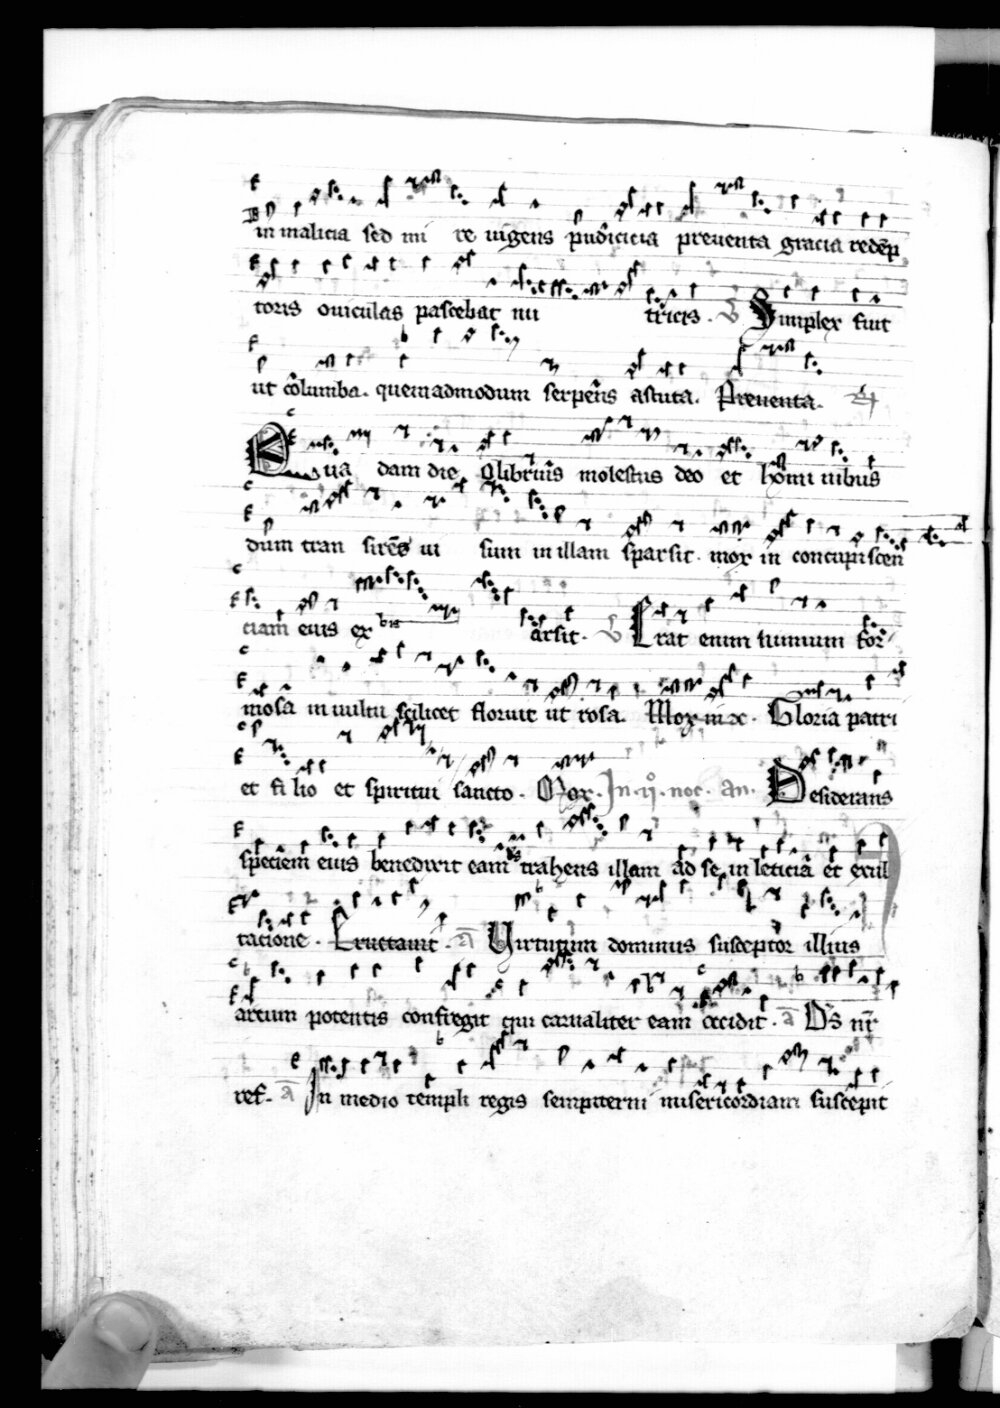 in malicia sed mi re uigens pudicicia preuenta gracia redemp
toris ouiculas pascebat nu tricis. V Simplex fuit
ut columba. quemadmodum serpens astuta. Preuenta. R
Qua dam die olibrius molestus deo et homi nibus
dum tran sires ui sum in illam sparsit. mox in concupiscen
ciam eius ex bis arsit. V Erat enim nimium for
mosa in uultu scilicet floruit ut rosa. Mox in 2c. Gloria patri
et fi lio et spiritui sancto. Mox. In .ij. noc. an. Desiderans
speciem eius benedixit eam trahens illam ad se in leticia et exul
tatione. Eructauit. a Uirtutum dominus susceptor illius
arcum potentis confregit qui carnaliter eam cecidit. a Ds nr
ref. a In medio templi regis sempiterni misericordiam suscepit